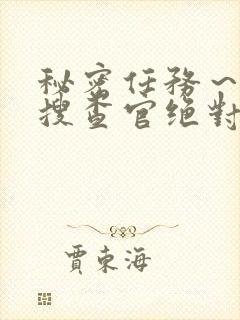 秘密任務～
搜查官绝對
賈東海